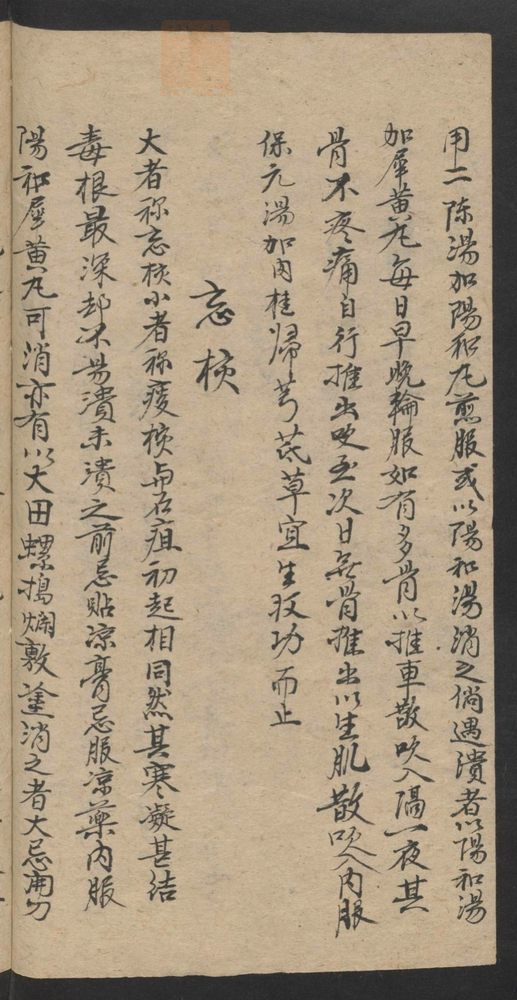 用二陈湯加陽和丸煎服或以陽和湯消之倘遇潰者以陽和湯
加犀黄丸每日早晚輪服如有多骨以推車散吹入隔一夜其
骨不疼痛自行推出吹至次日無骨推出以生肌散吹入内服
保元湯加肉桂歸芎芪草宜生收功而止
惡核
大者称惡核小者称痰核与石疽初起相同然其寒凝甚结
毒根最深却不易潰未潰之前忌贴凉膏忌服凉藥内服
陽和犀黄丸可消亦有以大田螺搗爛敷塗消之者大忌開刀